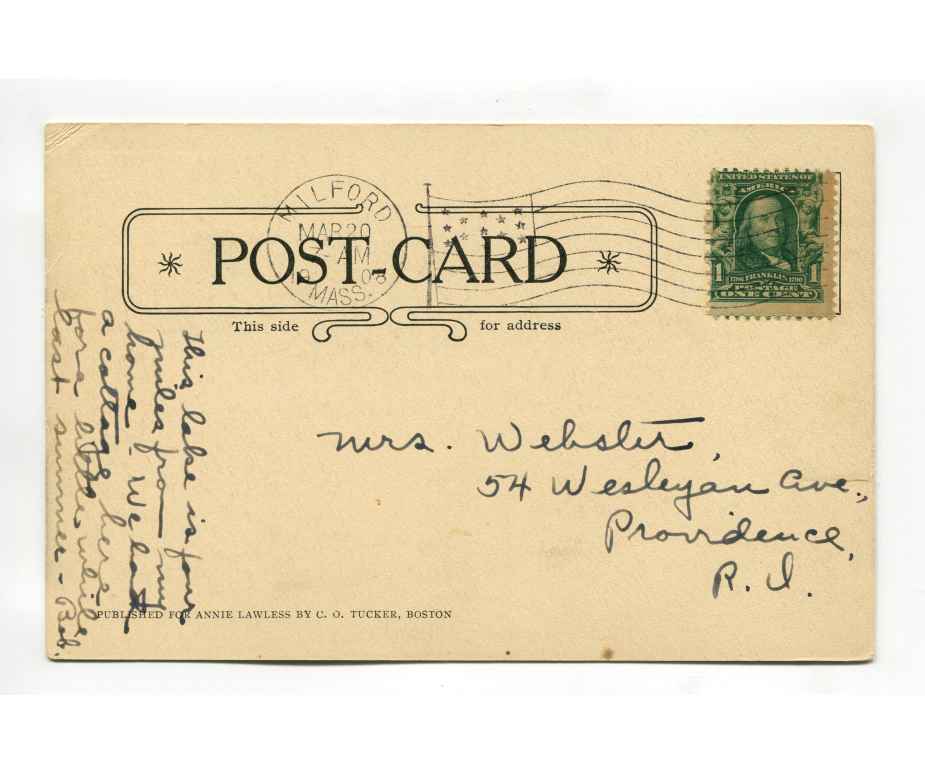 MILFORD
MAR 20
- AM
MASS.
POST-CARD
This side for address
UNITED STATES OF
AMERICA
1 1
1706 FRANKLIN 1790
POSTAGE
ONE CENT
This lake is four
miles from my
home - We had
a cottage here
for a little while
last summer - Bob.
Mrs. Webster,
54 Wesleyan Ave.,
Providence,
R. I.
PUBLISHED FOR ANNIE LAWLESS BY C. O. TUCKER, BOSTON